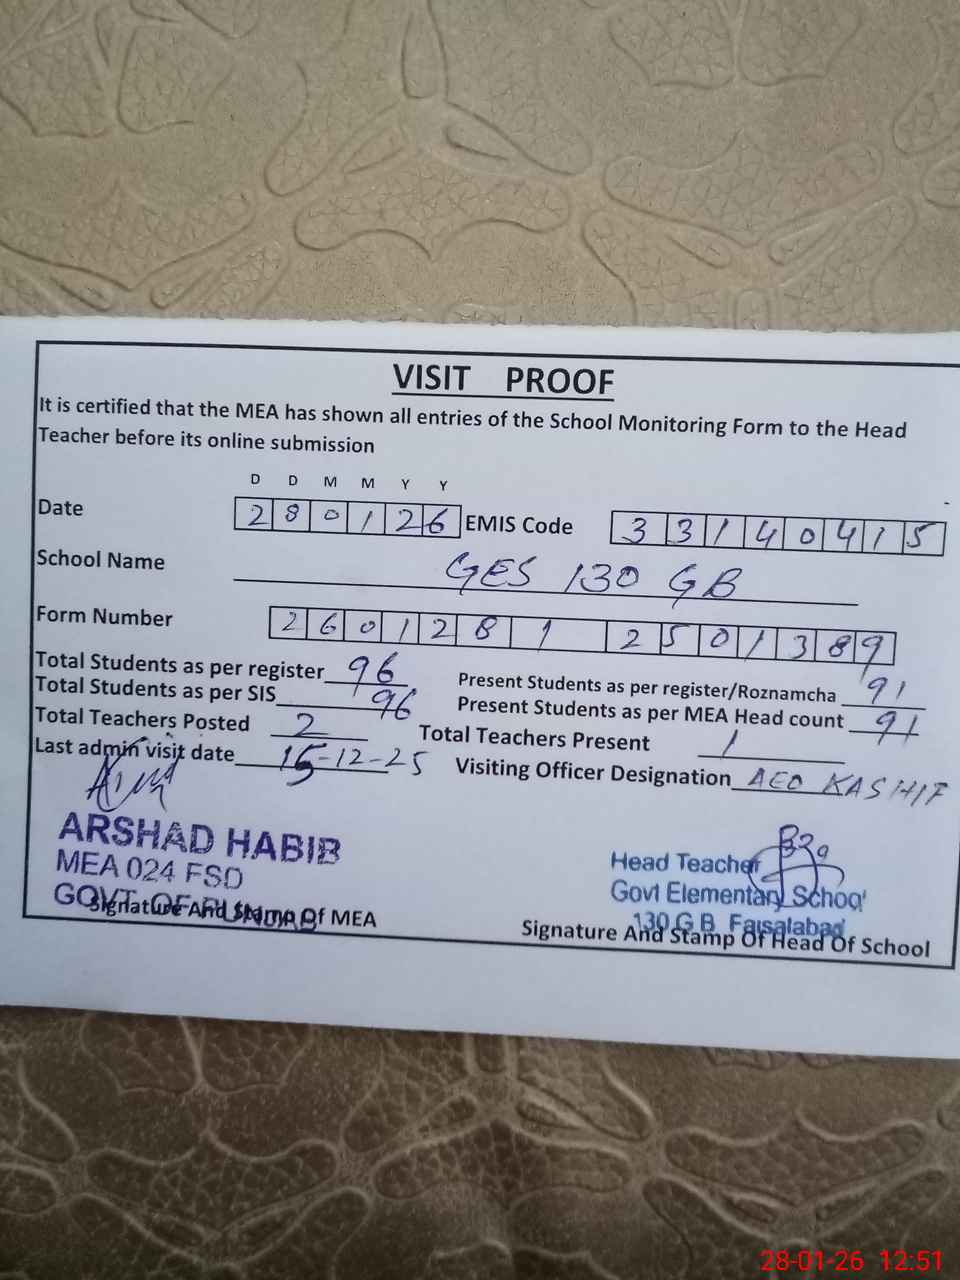 VISIT PROOF
It is certified that the MEA has shown all entries of the School Monitoring Form to the Head
Teacher before its online submission
D D M M Y Y
Date 280126 EMIS Code 33140415
School Name GES 130 GB
Form Number 2601281 2501389
Total Students as per register 96 Present Students as per register/Roznamcha 91
Total Students as per SIS 96 Present Students as per MEA Head count 91
Total Teachers Posted 2 Total Teachers Present 1
Last admin visit date 15-12-25 Visiting Officer Designation AEO KASHIF
ARSHAD HABIB
MEA 024 FSD
GOVT. OF PUNJAB
Signature And Stamp Of MEA
Head Teacher
Govt Elementary School
130 G B Faisalabad
Signature And Stamp Of Head Of School
28-01-26 12:51